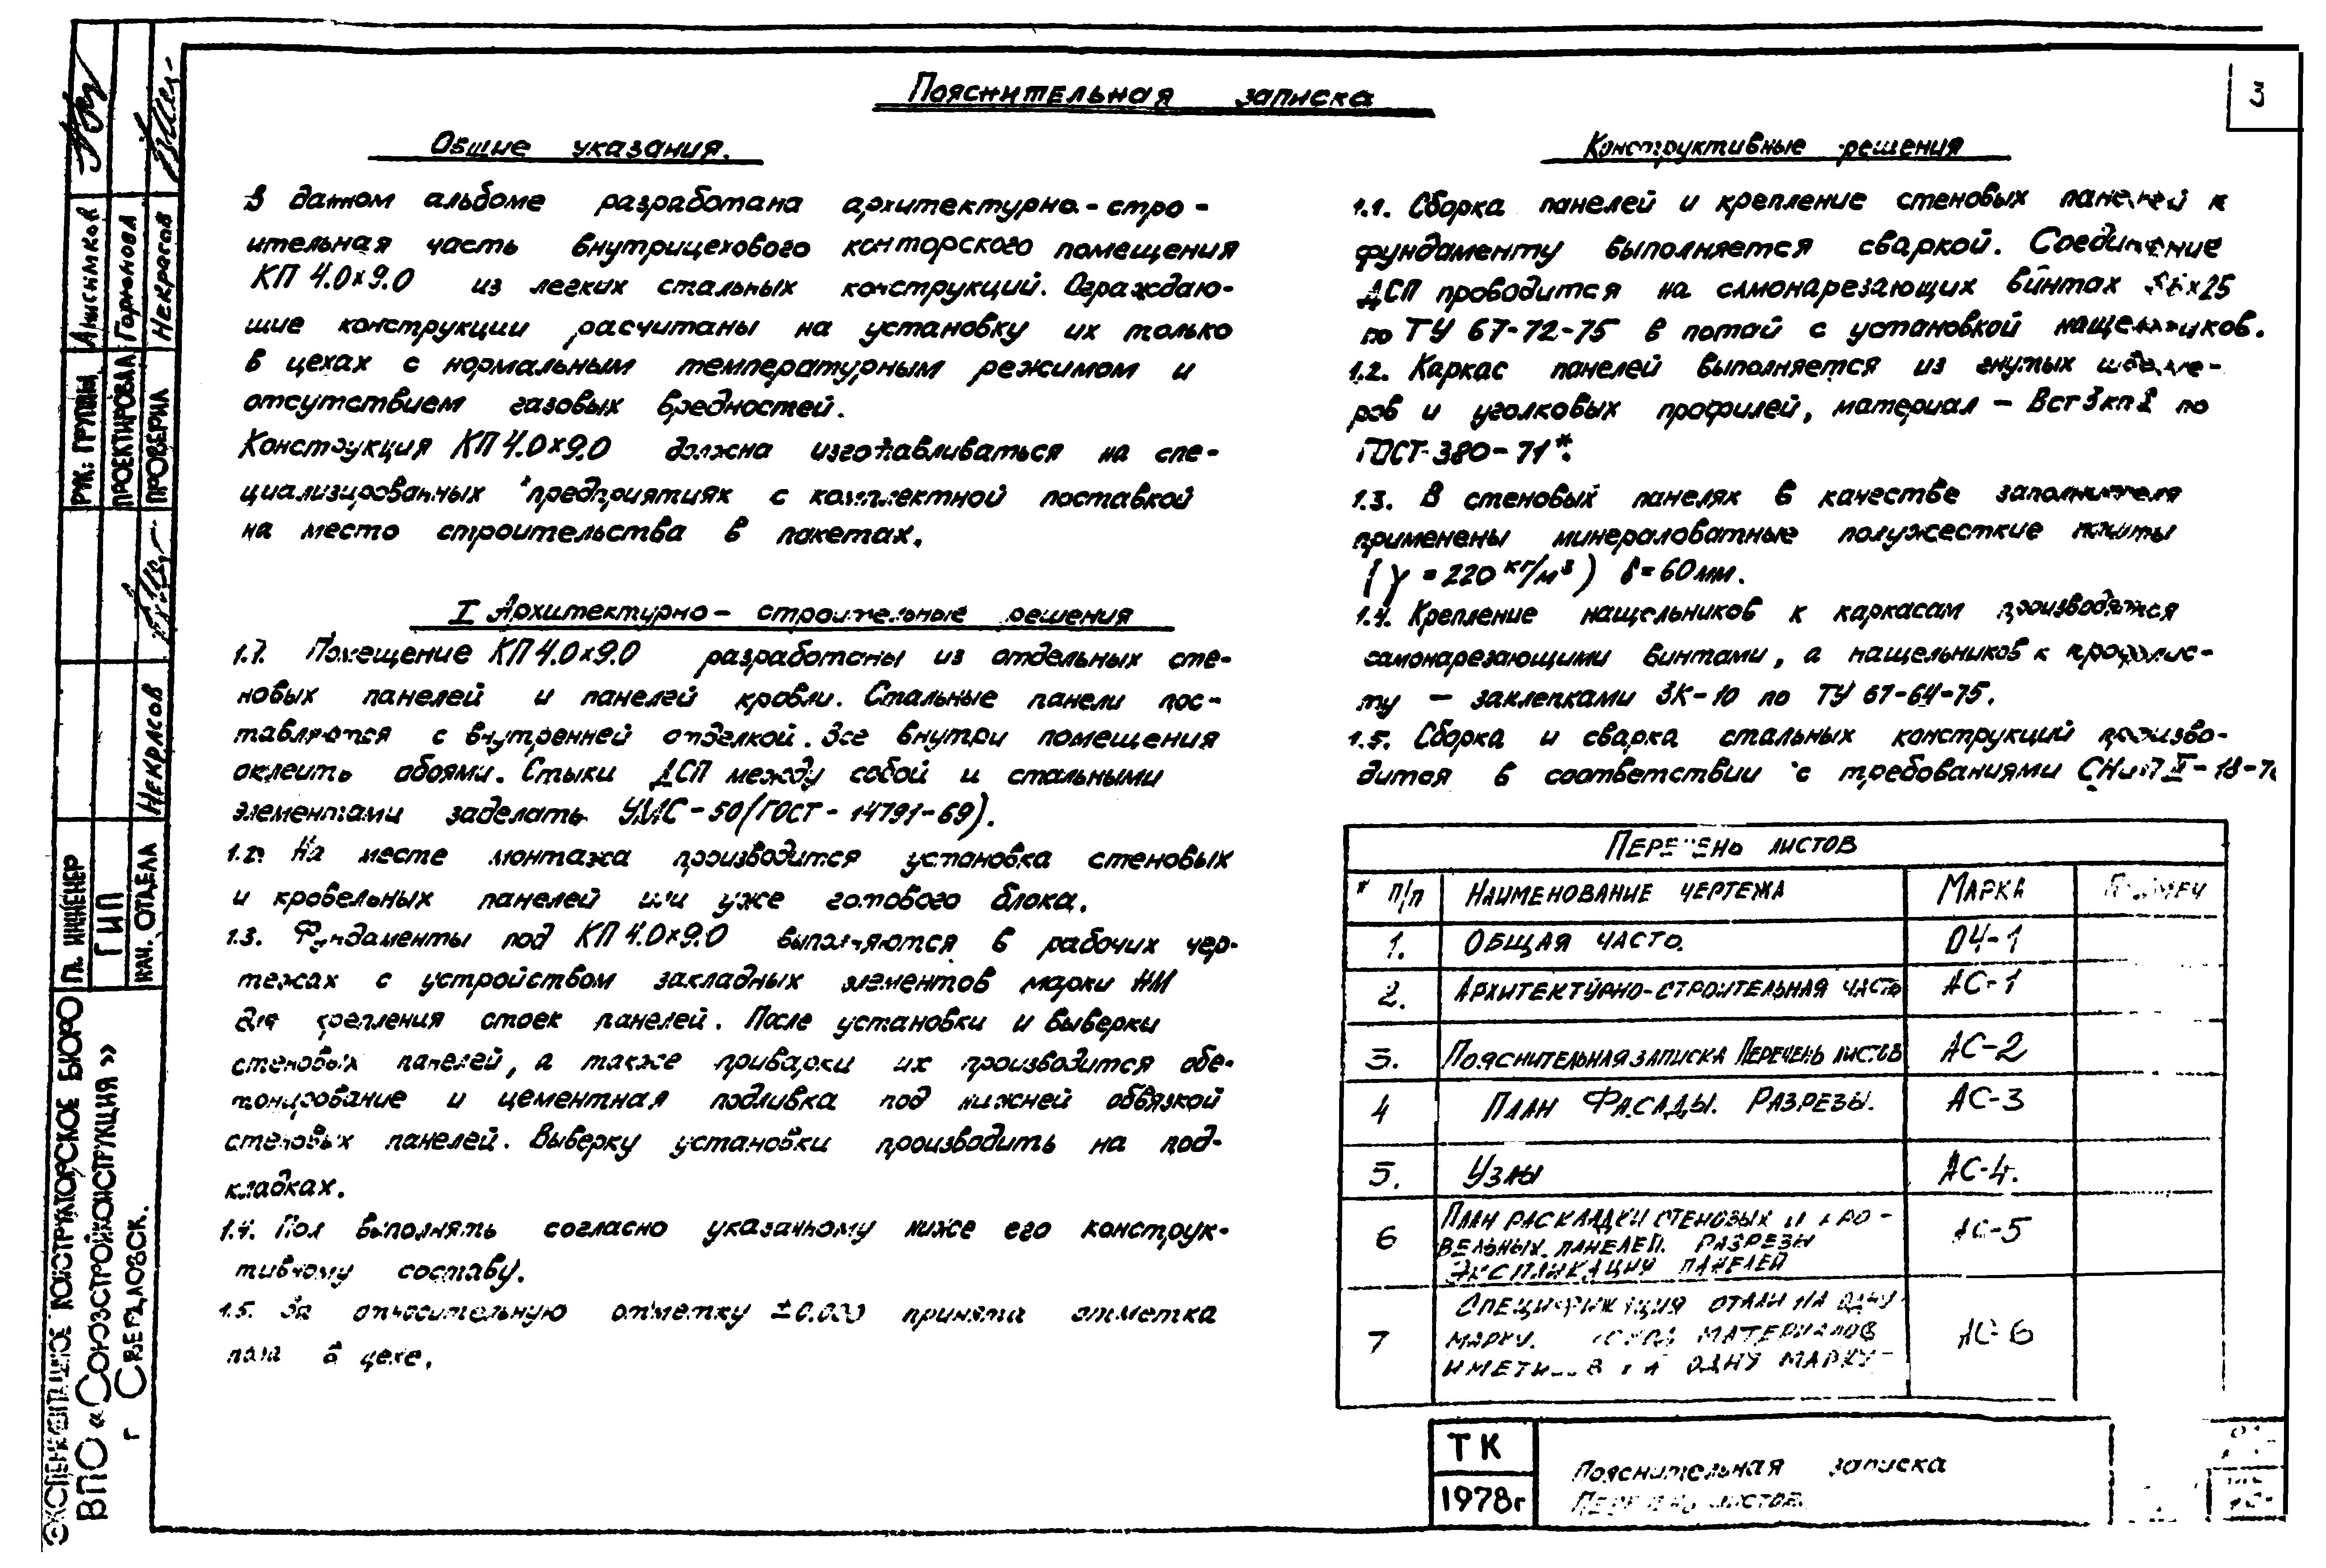 Пояснительная записка
3
Общие указания.
В данном альбоме разработана архитектурно-стро-
ительная часть внутрицехового конторского помещения
КП 4.0х9.0 из легких стальных конструкций. Ограждаю-
щие конструкции расчитаны на установку их только
в цехах с нормальным температурным режимом и
отсутствием газовых вредностей.
Конструкция КП 4.0х9.0 должна изготавливаться на спе-
циализированных предприятиях с комплектной поставкой
на место строительства в пакетах.
I Архитектурно-строительные решения
1.1. Помещение КП 4.0х9.0 разработаны из отдельных сте-
новых панелей и панелей кровли. Стальные панели пос-
тавляются с внутренней отделкой. Все внутри помещения
оклеить обоями. Стыки ДСП между собой и стальными
элементами заделать УМС-50 (ГОСТ-14791-69).
1.2. На месте монтажа производится установка стеновых
и кровельных панелей или уже готового блока.
1.3. Фундаменты под КП 4.0х9.0 выполняются в рабочих чер-
тежах с устройством закладных элементов марки НМ
для крепления стоек панелей. После установки и выверки
стеновых панелей, а также приварки их производится обе-
тонирование и цементная подливка под нижней обвязкой
стеновых панелей. Выверку установки производить на под-
кладках.
1.4. Пол выполнять согласно указанному ниже его конструк-
тивному составу.
1.5. За относительную отметку ±0.000 принята отметка
пола в цехе.
Конструктивные решения
1.1. Сборка панелей и крепление стеновых панелей к
фундаменту выполняется сваркой. Соединение
ДСП проводится на самонарезающих винтах х25
по ТУ 67-72-75 в потай с установкой нащельников.
1.2. Каркас панелей выполняется из гнутых швелле-
ров и уголковых профилей, материал - Вст3кп2 по
ГОСТ-380-71*.
1.3. В стеновых панелях в качестве заполнителя
применены минераловатные полужесткие плиты
(γ = 220 кг/м³) δ = 60 мм.
1.4. Крепление нащельников к каркасам производятся
самонарезающими винтами, а нащельников к профлис-
ту - заклепками ЗК-10 по ТУ 67-64-75.
1.5. Сборка и сварка стальных конструкций произво-
дится в соответствии с требованиями СНиП III-18-
Перечень листов
п/п Наименование чертежа Марка Примеч
1. Общая часть. ОЧ-1
2. Архитектурно-строительная часть АС-1
3. Пояснительная записка Перечень листов АС-2
4 План Фасады. Разрезы. АС-3
5. Узлы АС-4.
6 План раскладки стеновых и кро-
вельных панелей. Разрезы
Экспликация панелей АС-5
7 Спецификация стали на одну
марку. материалов
одну марку АС-6
ТК
1978г
Пояснительная записка
Перечень листов.
Рук. группы Анисимков
Проектировал Горюнова
Проверил Некрасов
Гл. инженер
ГИП
Нач. отдела Некрасов
Экспериментальное конструкторское бюро
ВПО «Союзстройконструкция»
г Свердловск.